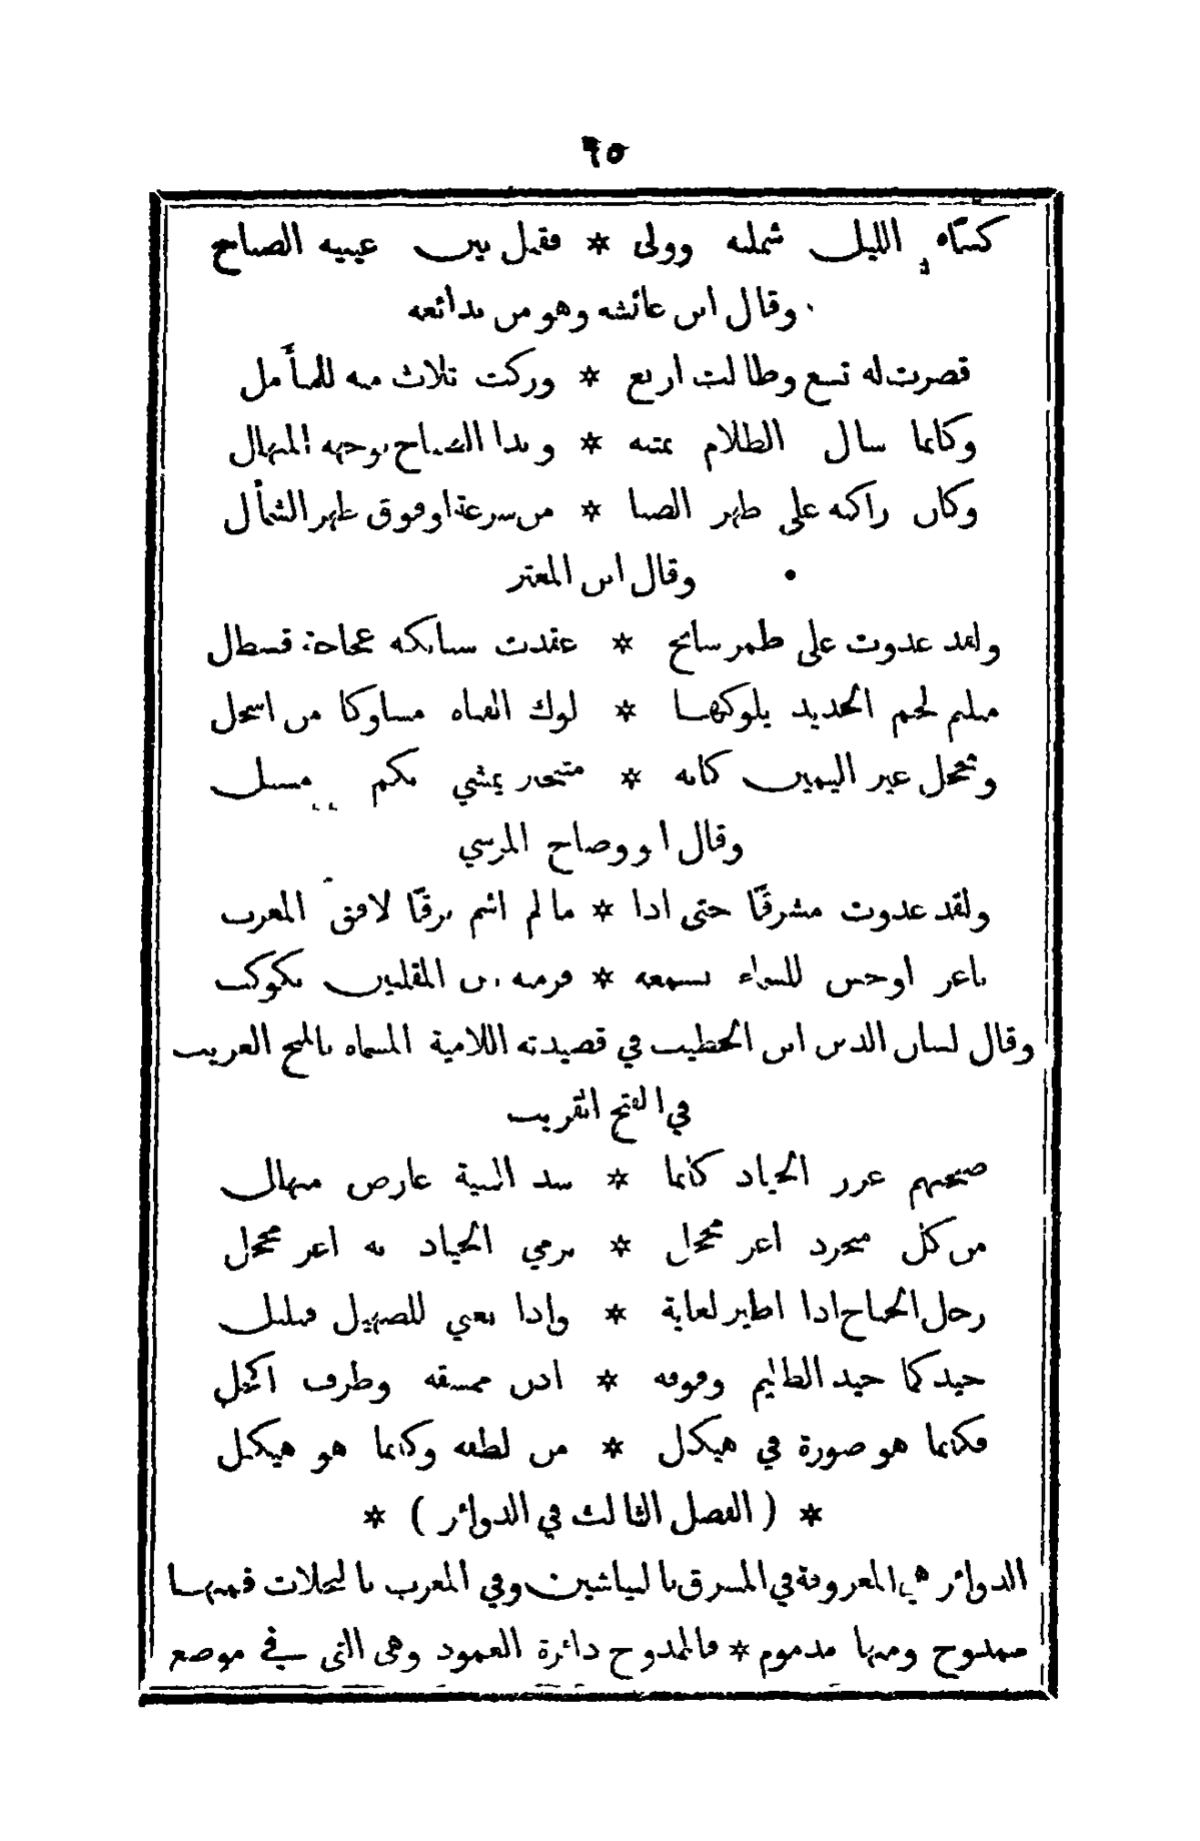 ٩٥
كساه الليل شملته وولى * فقبل بين عينيه الصباح
وقال ابن عائشه وهو من بدائعه
قصرت له تسع وطالت اربع * وزكت ثلاث منه للمتأمل
وكانما سال الظلام بمتنه * وبدا الصباح بوجهه المتهلل
وكان راكبه على ظهر الصبا * من سرعة او فوق ظهر الشمأل
وقال ابن المعتز
ولقد غدوت على طمر سابح * عقدت سنابكه عجاجة قسطال
متلثم لجم الحديد يلوكها * لوك الفتاه مساوكا من اسحل
ومحجل غير اليمين كانه * متبختر يمشي بكم مسبل
وقال ابو وضاح المرسي
ولقد غدوت مشرقًا حتى اذا * مالم اشم برقًا لافق المغرب
باغر اوجس للسراء بسمعه * فرمته من المقلتين بكوكب
وقال لسان الدين ابن الخطيب في قصيدته اللامية المسماه بالمنح الغريب
في الفتح القريب
صبحتهم غرر الجياد كانما * سد الثنية عارض متهلل
من كل منجرد اغر محجل * يرمي الجياد به اغر محجل
زجل الجناح اذا اطير لغاية * واذا تغني للصهيل فبلبل
جيد كما جيد الظليم وفوقه * اذن ممشقه وطرف اكحل
فكانما هو صورة في هيكل * من لطفه وكانما هو هيكل
* ( الفصل الثالث في الدوائر ) *
الدوائر هي المعروفة في المشرق بالنياشين وفي المغرب بالنخلات فمنها
ممدوح ومنها مذموم * فالممدوح دائرة العمود وهى التى في موضع